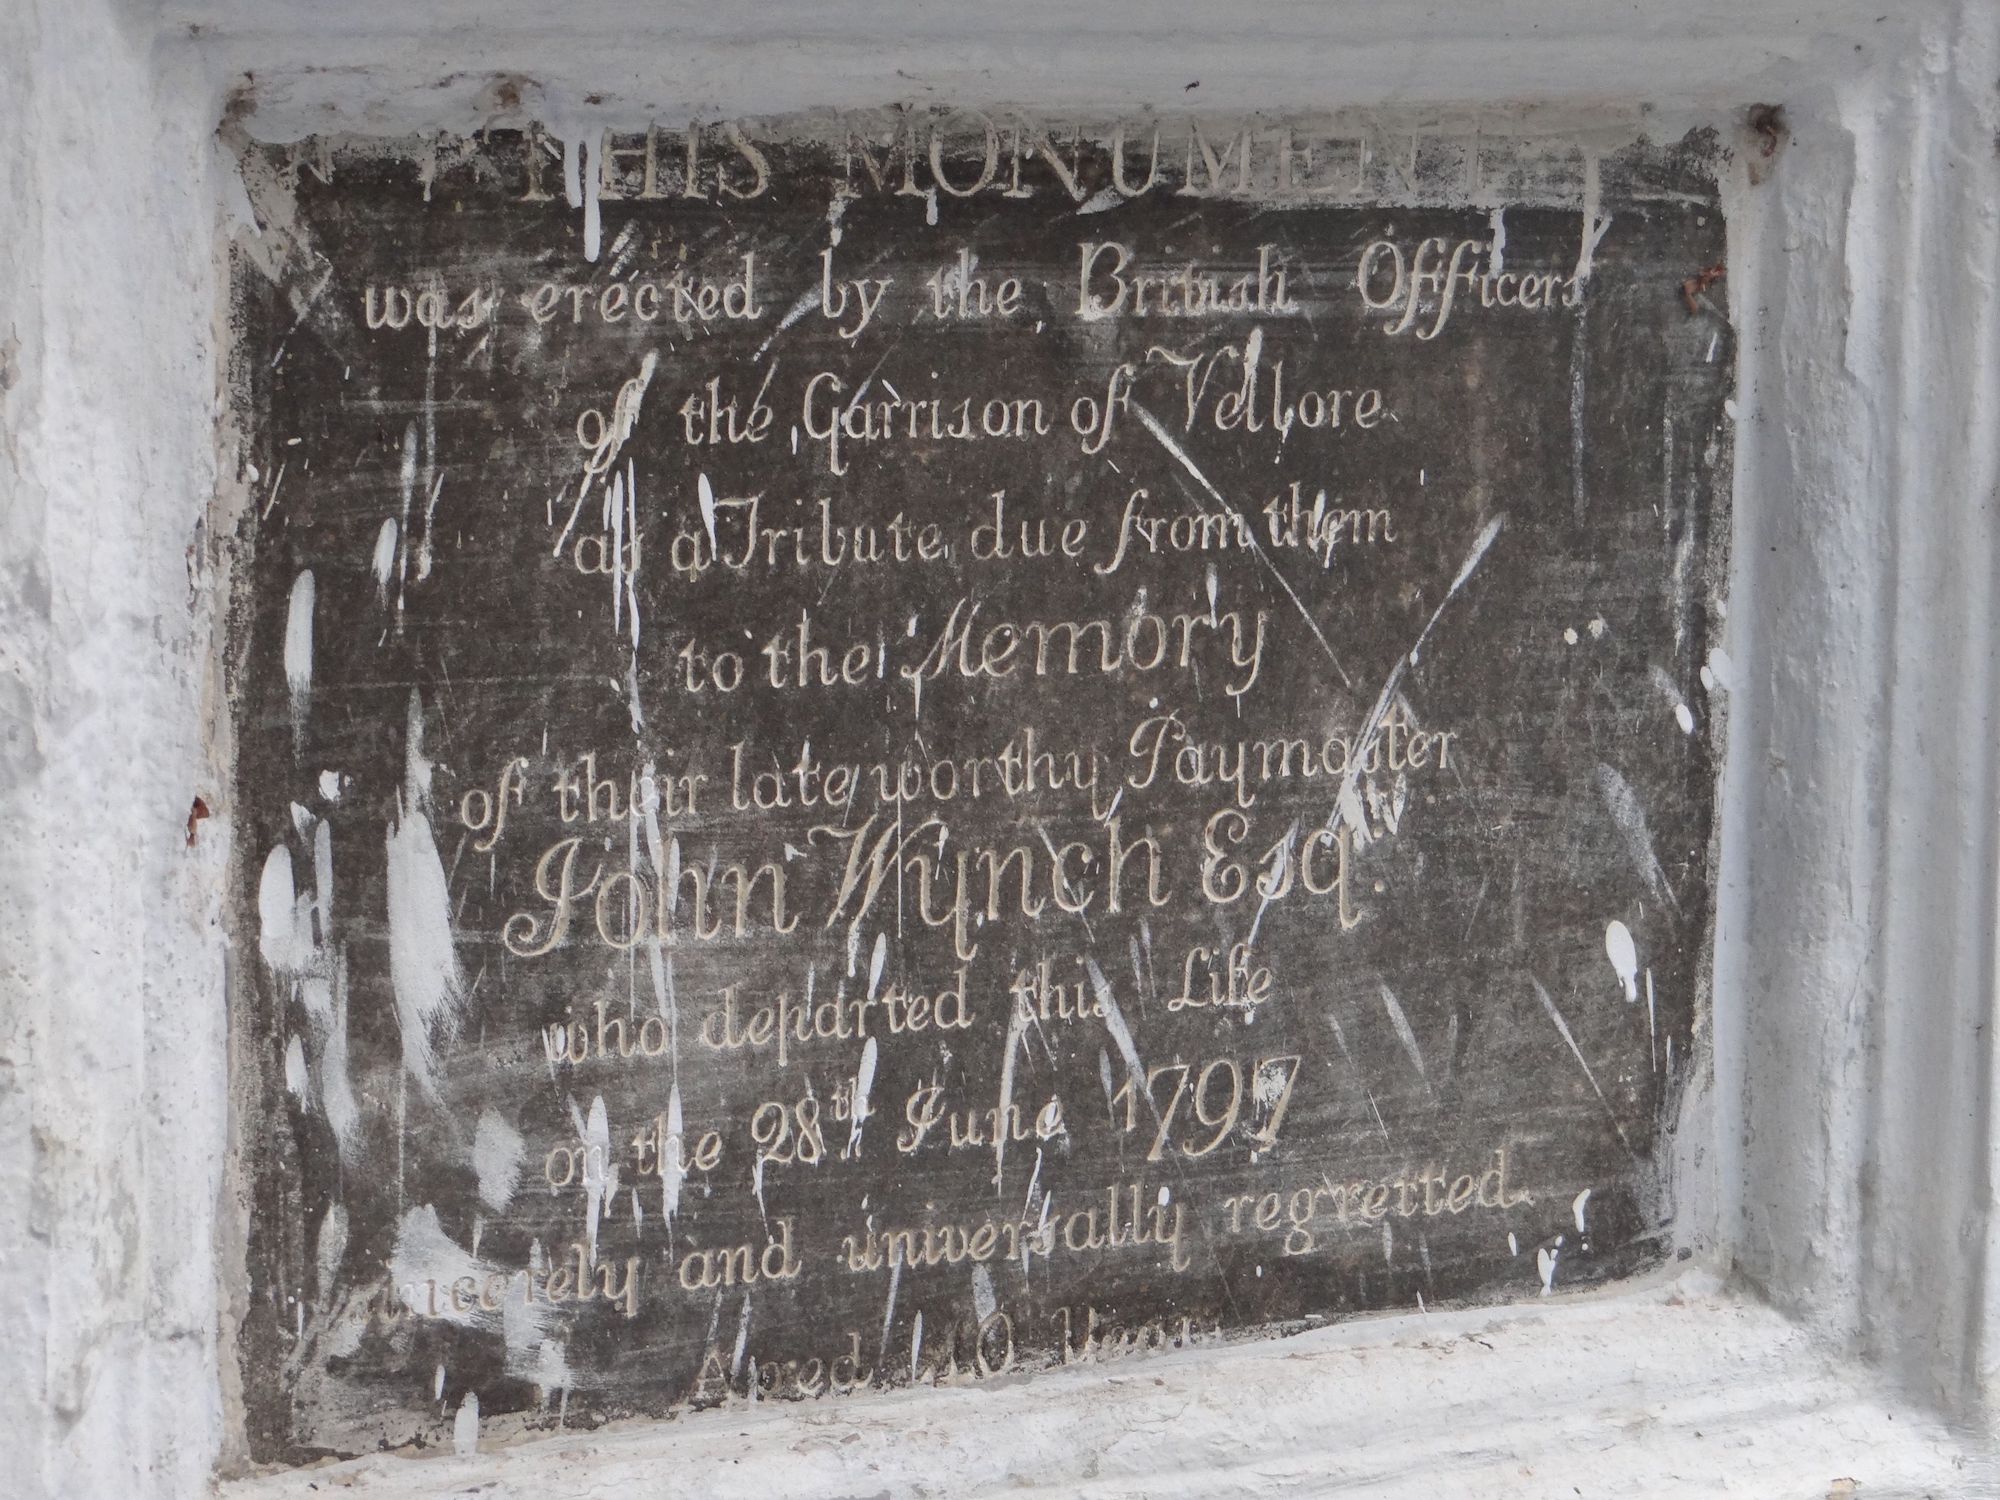 THIS MONUMENT
was erected by the British Officers
of the Garrison of Vellore
as a Tribute due from them
to the Memory
of their late worthy Paymaster
John Wynch Esq:
who departed this Life
on the 28th June 1797
sincerely and universally regretted.
Aged 40 Years